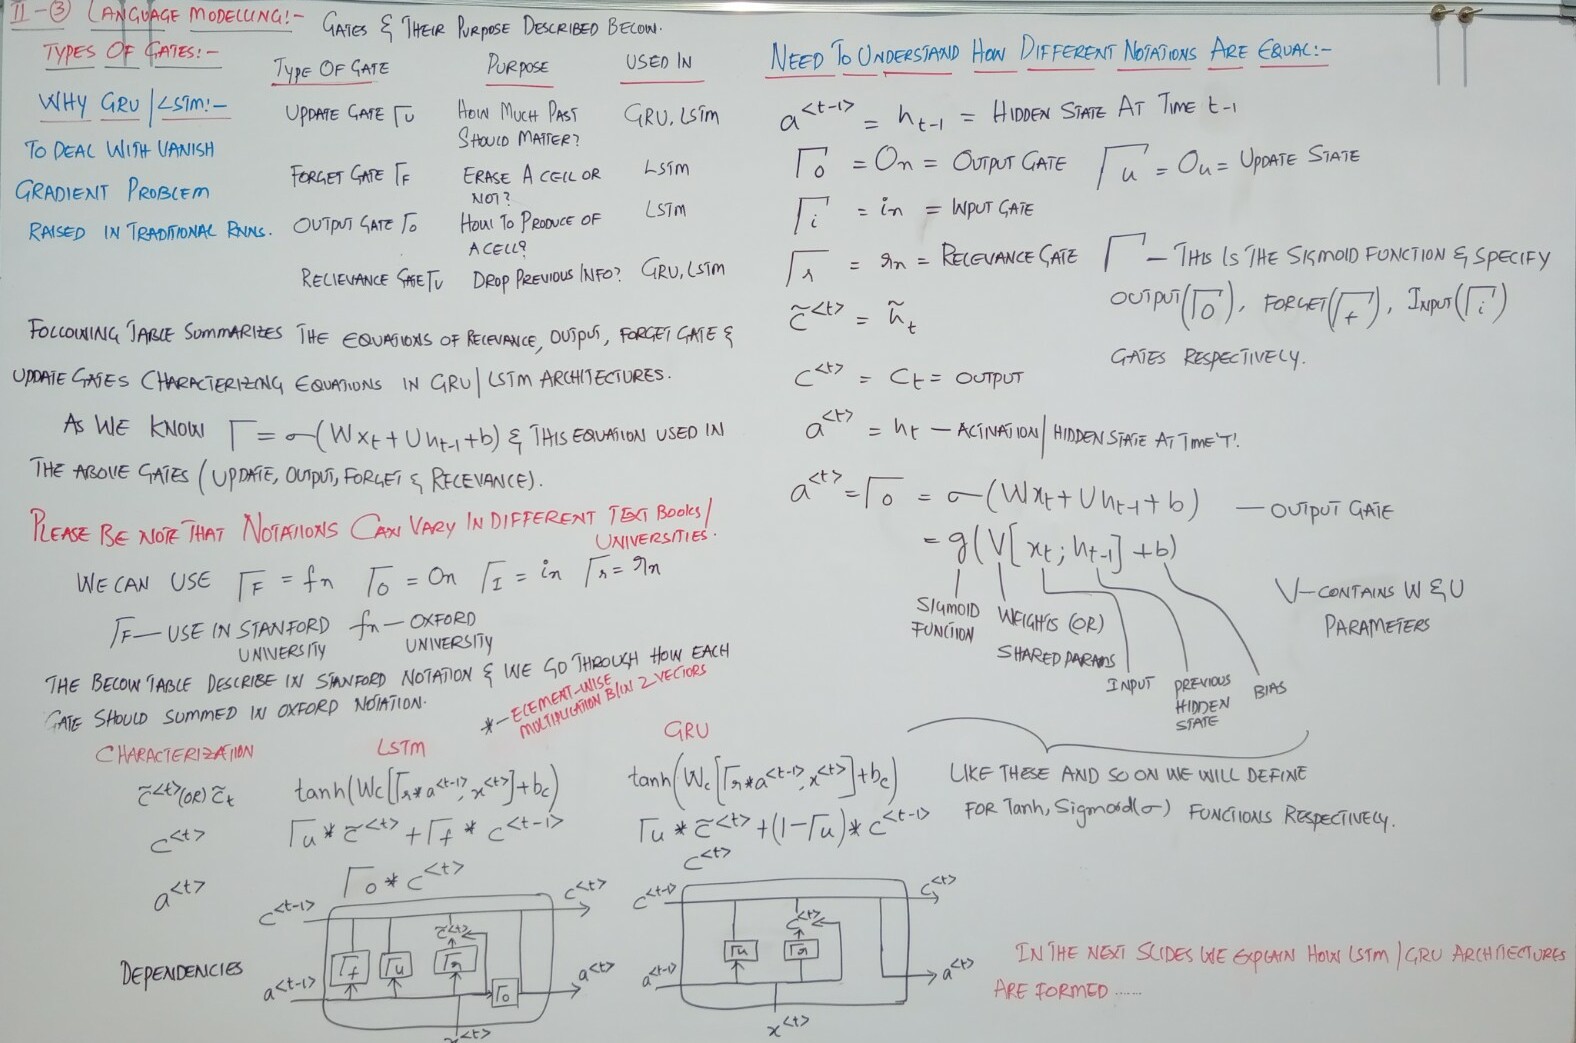 II-③ LANGUAGE MODELLING:- GATES & THEIR PURPOSE DESCRIBED BELOW.
TYPES OF GATES:-
TYPE OF GATE PURPOSE USED IN
UPDATE GATE Γu HOW MUCH PAST SHOULD MATTER? GRU, LSTM
FORGET GATE ΓF ERASE A CELL OR NOT? LSTM
OUTPUT GATE Γo HOW TO PRODUCE OF A CELL? LSTM
RELIEVANCE GATE Γu DROP PREVIOUS INFO? GRU, LSTM
WHY GRU/LSTM:-
TO DEAL WITH VANISH
GRADIENT PROBLEM
RAISED IN TRADTIONAL RNNS.
FOLLOWING TABLE SUMMARIZES THE EQUATIONS OF RELEVANCE, OUTPUT, FORGET GATE &
UPDATE GATES CHARACTERIZING EQUATIONS IN GRU/LSTM ARCHITECTURES.
AS WE KNOW Γ = σ(Wxt + Uht-1 + b) & THIS EQUATION USED IN
THE ABOVE GATES (UPDATE, OUTPUT, FORGET & RELEVANCE).
PLEASE BE NOTE THAT NOTATIONS CAN VARY IN DIFFERENT TEXT BOOKS/
UNIVERSITIES.
WE CAN USE ΓF = fn Γo = On ΓI = in Γr = rn
ΓF — USE IN STANFORD UNIVERSITY fn — OXFORD UNIVERSITY
THE BELOW TABLE DESCRIBE IN STANFORD NOTATION & WE GO THROUGH HOW EACH
GATE SHOULD SUMMED IN OXFORD NOTATION.
* — ELEMENT-WISE
MULTIPLICATION B/W 2 VECTORS
CHARACTERIZATION LSTM GRU
c̃<t> (OR) c̃t tanh(Wc[Γr * a<t-1>, x<t>] + bc) tanh(Wc[Γr * a<t-1>, x<t>] + bc)
c<t> Γu * c̃<t> + Γf * c<t-1> Γu * c̃<t> + (1-Γu) * c<t-1>
a<t> Γo * c<t> c<t>
DEPENDENCIES
c<t-1> c<t>
c̃<t>
Γf Γu Γr
Γo
a<t-1> a<t>
x<t>
c<t-1> c<t>
c̃<t>
Γu Γr
a<t-1> a<t>
x<t>
NEED TO UNDERSTAND HOW DIFFERENT NOTATIONS ARE EQUAL:-
a<t-1> = ht-1 = HIDDEN STATE AT TIME t-1
Γo = On = OUTPUT GATE Γu = Ou = UPDATE STATE
Γi = in = INPUT GATE
Γr = rn = RELEVANCE GATE
Γ — THIS IS THE SIGMOID FUNCTION & SPECIFY
OUTPUT(Γo), FORGET(Γf), INPUT(Γi)
GATES RESPECTIVELY.
c̃<t> = h̃t
c<t> = Ct = OUTPUT
a<t> = ht — ACTINATION/HIDDEN STATE AT TIME 'T'.
a<t> = Γo = σ(Wxt + Uht-1 + b) — OUTPUT GATE
= g(V[xt; ht-1] + b)
SIGMOID FUNCTION
WEIGHTS (OR)
SHARED PARAMS
INPUT
PREVIOUS HIDDEN STATE
BIAS
V — CONTAINS W & U
PARAMETERS
LIKE THESE AND SO ON WE WILL DEFINE
FOR Tanh, Sigmoid(σ) FUNCTIONS RESPECTIVELY.
IN THE NEXT SLIDES WE EXPLAIN HOW LSTM/GRU ARCHITECTURES
ARE FORMED ......